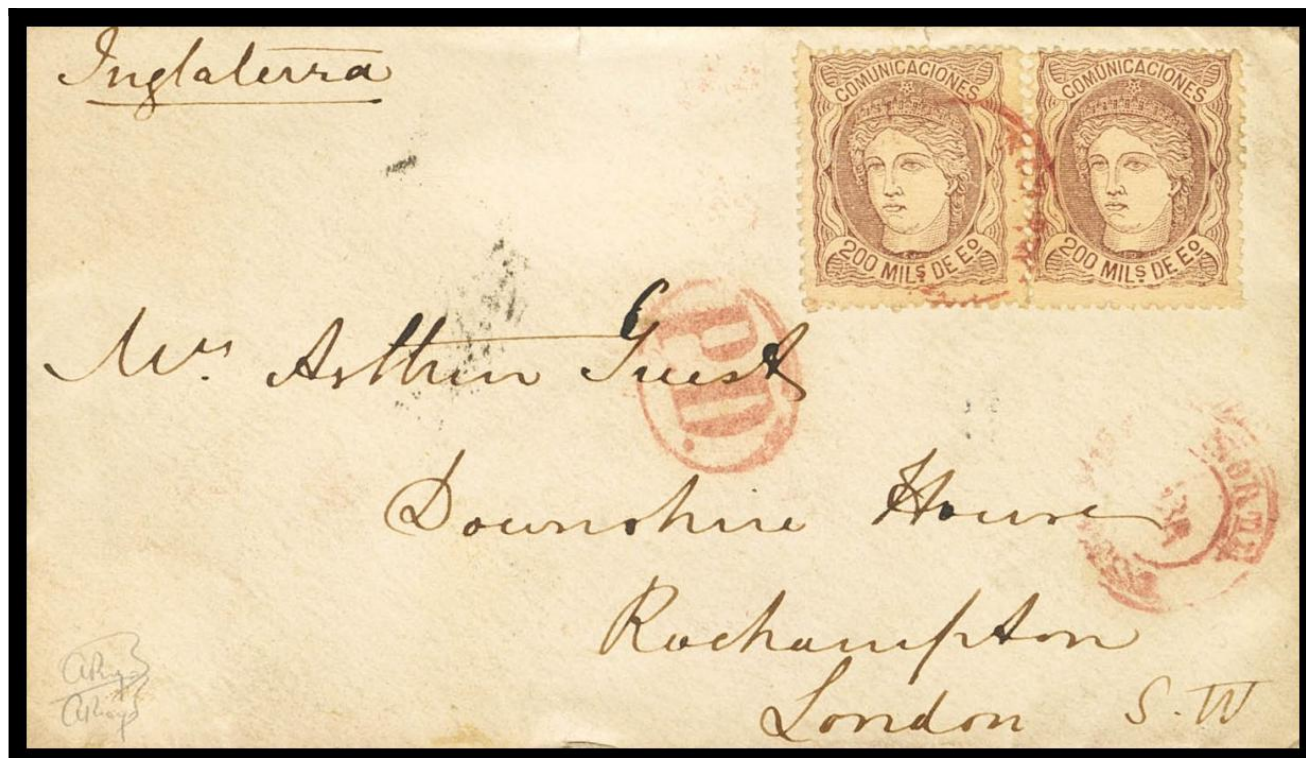 Inglaterra
COMUNICACIONES
200 MILS DE Eo
COMUNICACIONES
200 MILS DE Eo
P.D.
Mrs. Arthur Guest
Downshire House
NORTE
Roehampton
London S.W